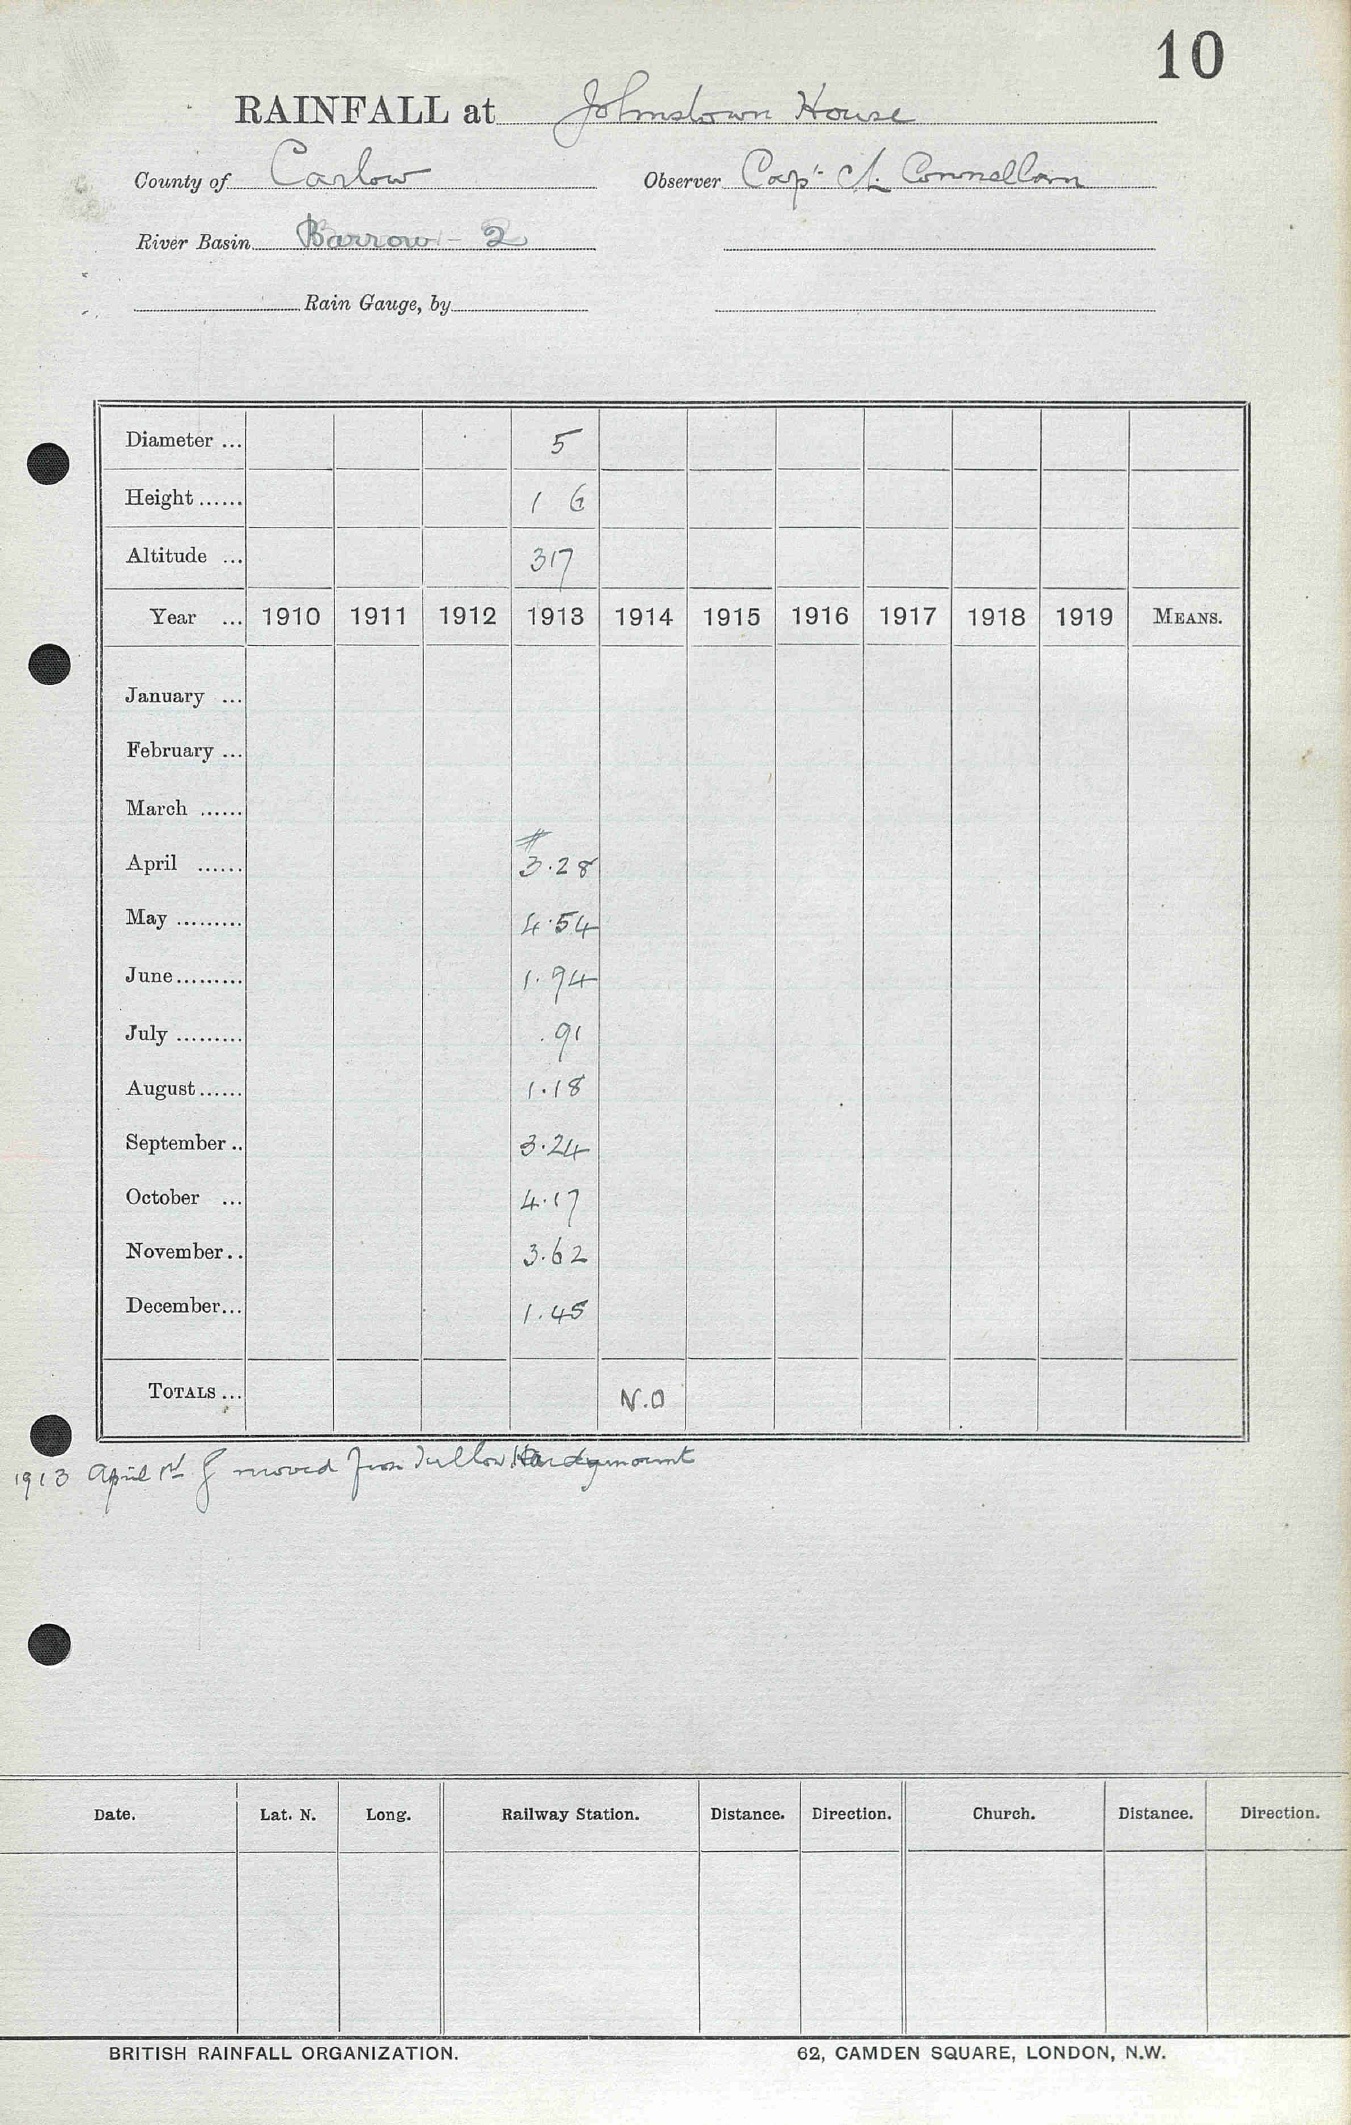 10
RAINFALL at Johnstown House
County of Carlow Observer Capt. Connellan
River Basin Barrow - 2
Rain Gauge, by
Diameter ... 5
Height ...... 1 6
Altitude ... 317
Year ... 1910 1911 1912 1913 1914 1915 1916 1917 1918 1919 MEANS.
January ...
February ...
March ......
#
April ...... 3.28
May ......... 4.54
June ......... 1.94
July ......... .91
August ...... 1.18
September .. 3.24
October ... 4.17
November .. 3.62
December ... 1.45
TOTALS ... N.O
1913 April 1st G moved from Tullow Hardymount
Date. Lat. N. Long. Railway Station. Distance. Direction. Church. Distance. Direction.
BRITISH RAINFALL ORGANIZATION. 62, CAMDEN SQUARE, LONDON, N.W.